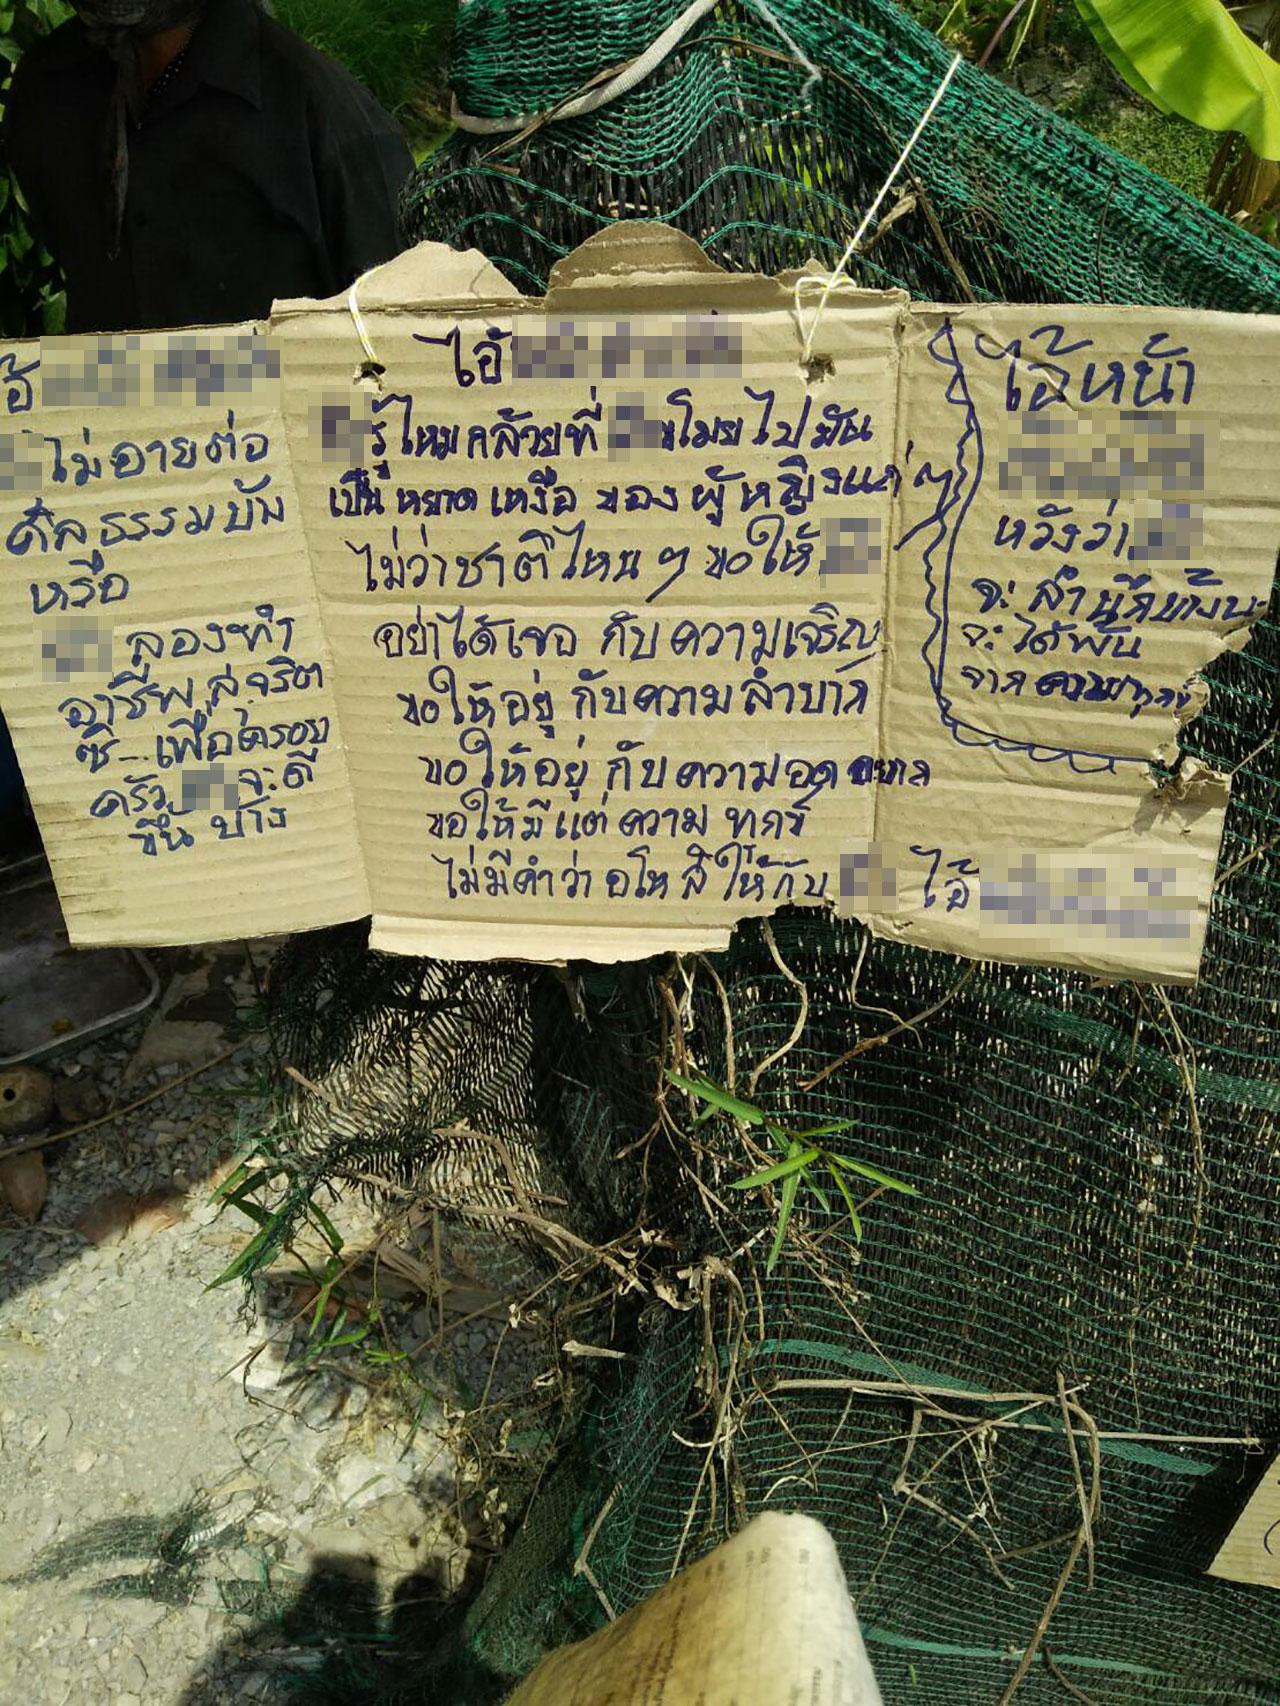 อ้
ไม่อายต่อ
ศีลธรรมบ้าง
หรือ
ลองทำ
อาชีพสุจริต
ซิ... เพื่อครอบ
ครัว จะดี
ขึ้นบ้าง
ไอ้
รู้ไหมกล้วยที่ ขโมยไปมัน
เป็นหยาดเหงื่อ ของผู้หญิงแก่ๆ
ไม่ว่าชาติไหนๆ ขอให้
อย่าได้เจอ กับความเจริญ
ขอให้อยู่ กับความลำบาก
ขอให้อยู่ กับความอด
ขอให้มีแต่ความทุกข์
ไม่มีคำว่าอโหสิให้กับ ไอ้
ไอ้หน้า
หวังว่า
จะสำนึกบ้าง
จะได้พ้น
จากความทุกข์